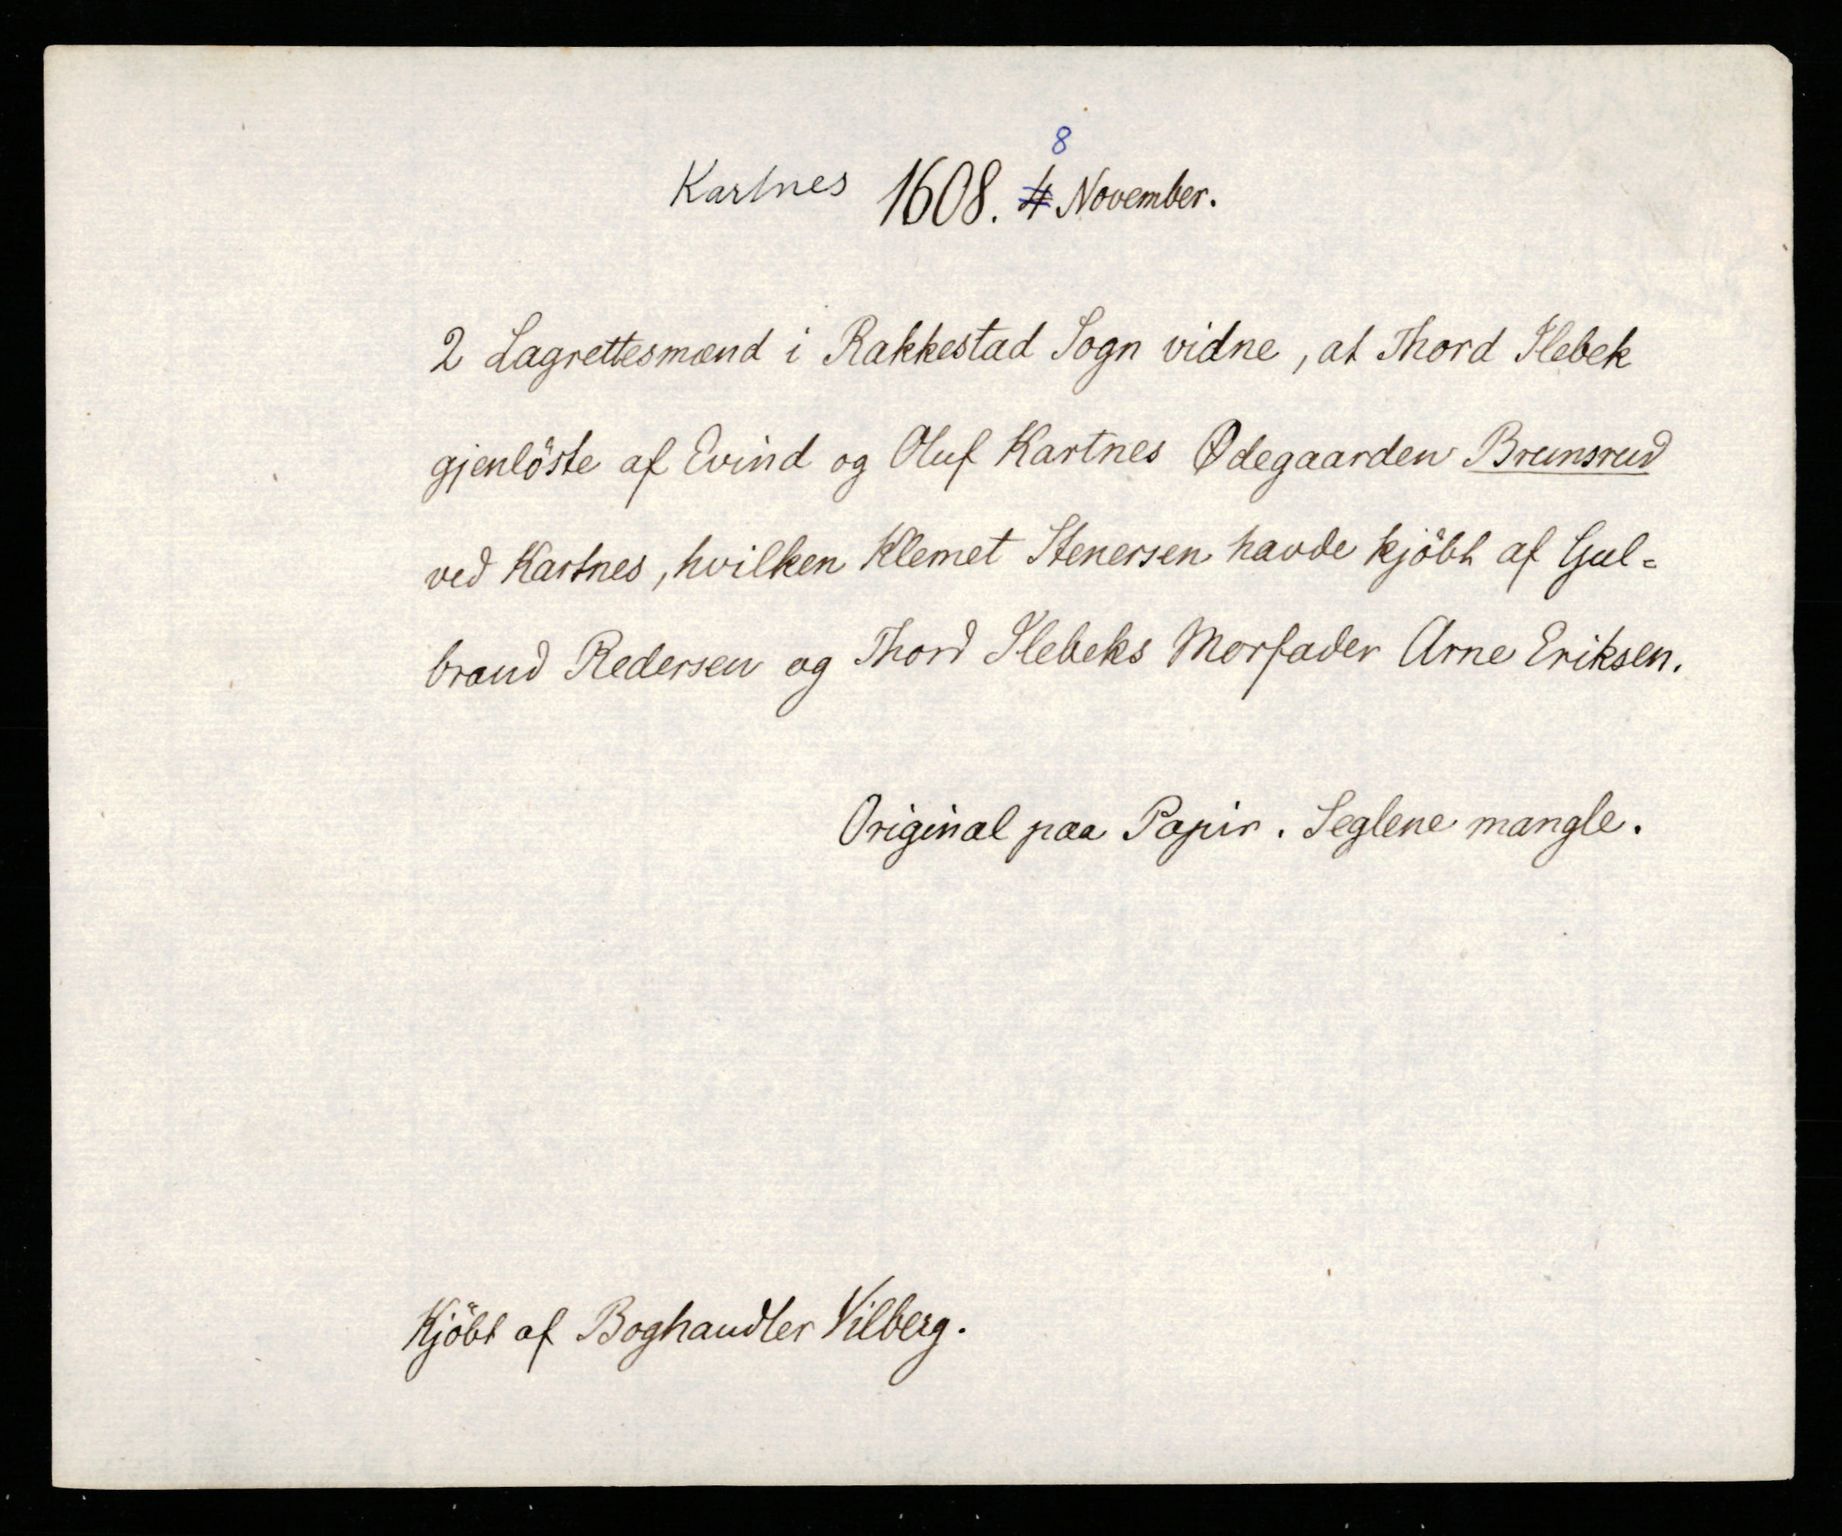 8
Kartnes 1608. 4 November.
2 Lagrettesmænd i Rakkestad Sogn vidne, at Thord Ilebek
gjenlöste af Evind og Oluf Kartnes Ødegaarden Brunsrud
ved Kartnes, hvilken Klemet Stenersen havde kjöbt af Gul=
brand Redersen og Thord Ilebeks Morfader Arne Eriksen.
Original paa Papir. Seglene mangle.
Kjöbt af Boghandler Vilberg.